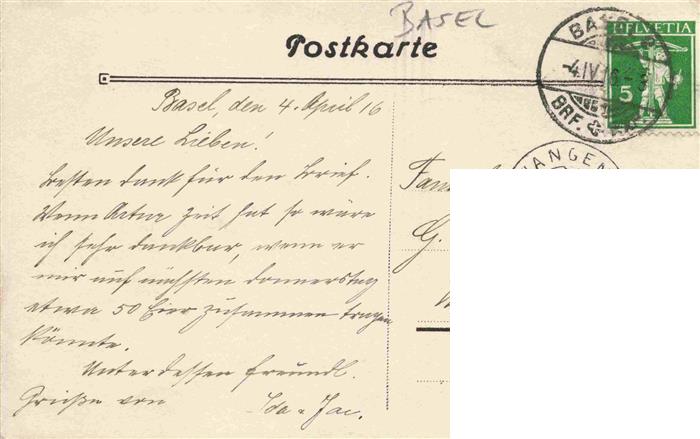 BASEL
Postkarte
HELVETIA
5
BASEL
-4.IV.16.-
BRF.
Basel, den 4. April 16
Unsere Lieben!
Besten dank für den Brief.
Wenn Artur Zeit hat so wäre
ich sehr dankbar, wenn er
mir auf nächsten donnerstag
etwa 50 Eier zusammen tragen
könnte.
Unterdessen freundl.
Grüße von Ida u Jac.
WANGEN
Fam
G.